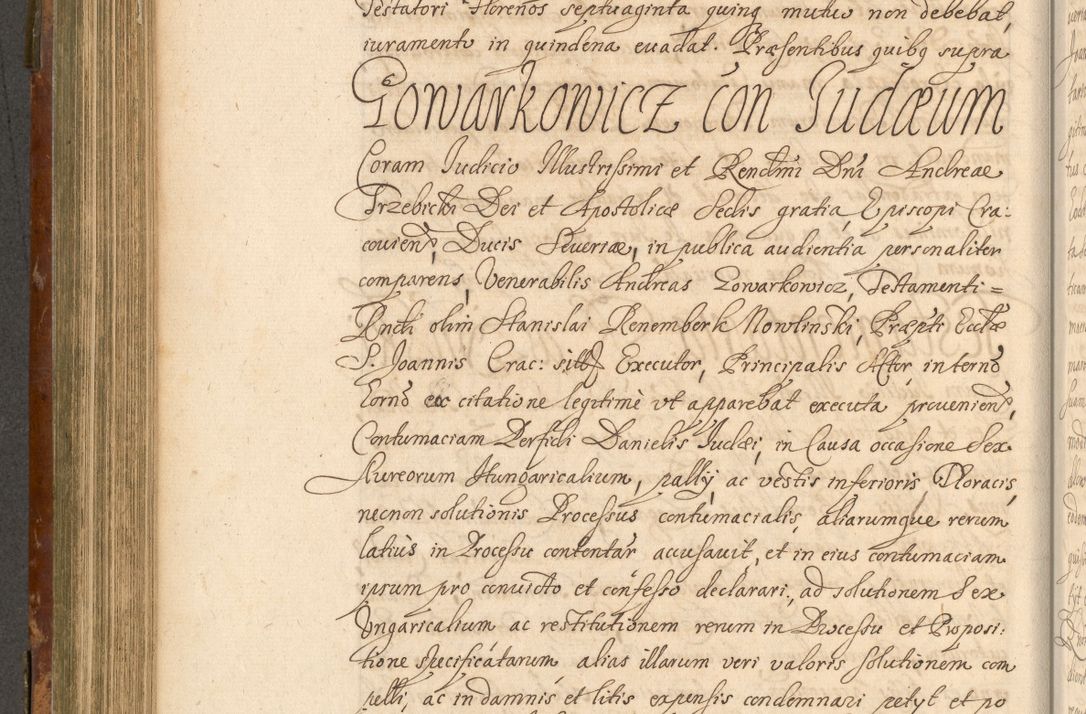 Testatori Florenos septuaginta quinq mutuo non debebat,
iuramento in quindena euadat. Præsentibus quibq supra
Gowarkowicz con Iudæum
Coram Iudicio Illustrissimi et Rendmi Dni Andreae
Trzebicki Dei et Apostolicæ Sedis gratia Episcopi Cra:
couien, Ducis Seueriæ, in publica audientia personaliter
comparens, Venerabilis Andreas Gowarkowicz, Testamenti=
Rndi olim Stanislai Renemberk Nowlinski, Præpti Ecclæ
S. Joannis Crac: Executor, Principalis Actor, in termo
ex citatione legitimè vt apparebat executa proueniend,
Contumaciam Perfidi Danielis Iudæi, in Causa occasione Sex
Aureorum Hungaricalium, pallij, ac vestis inferioris Thoracis,
necnon solutionis Processus contumacialis, aliarumque rerum
latiùs in Processu contentar accusauit, et in eius contumaciam
ipsum pro conuicto et confesso declarari, ad solutionem Sex
Vngaricalium ac restitutionem rerum in Processu et Proposi:
tione specificatarum alias illarum veri valoris solutionem com
pelli, ac in damnis et litis expensis condemnari petyt et po